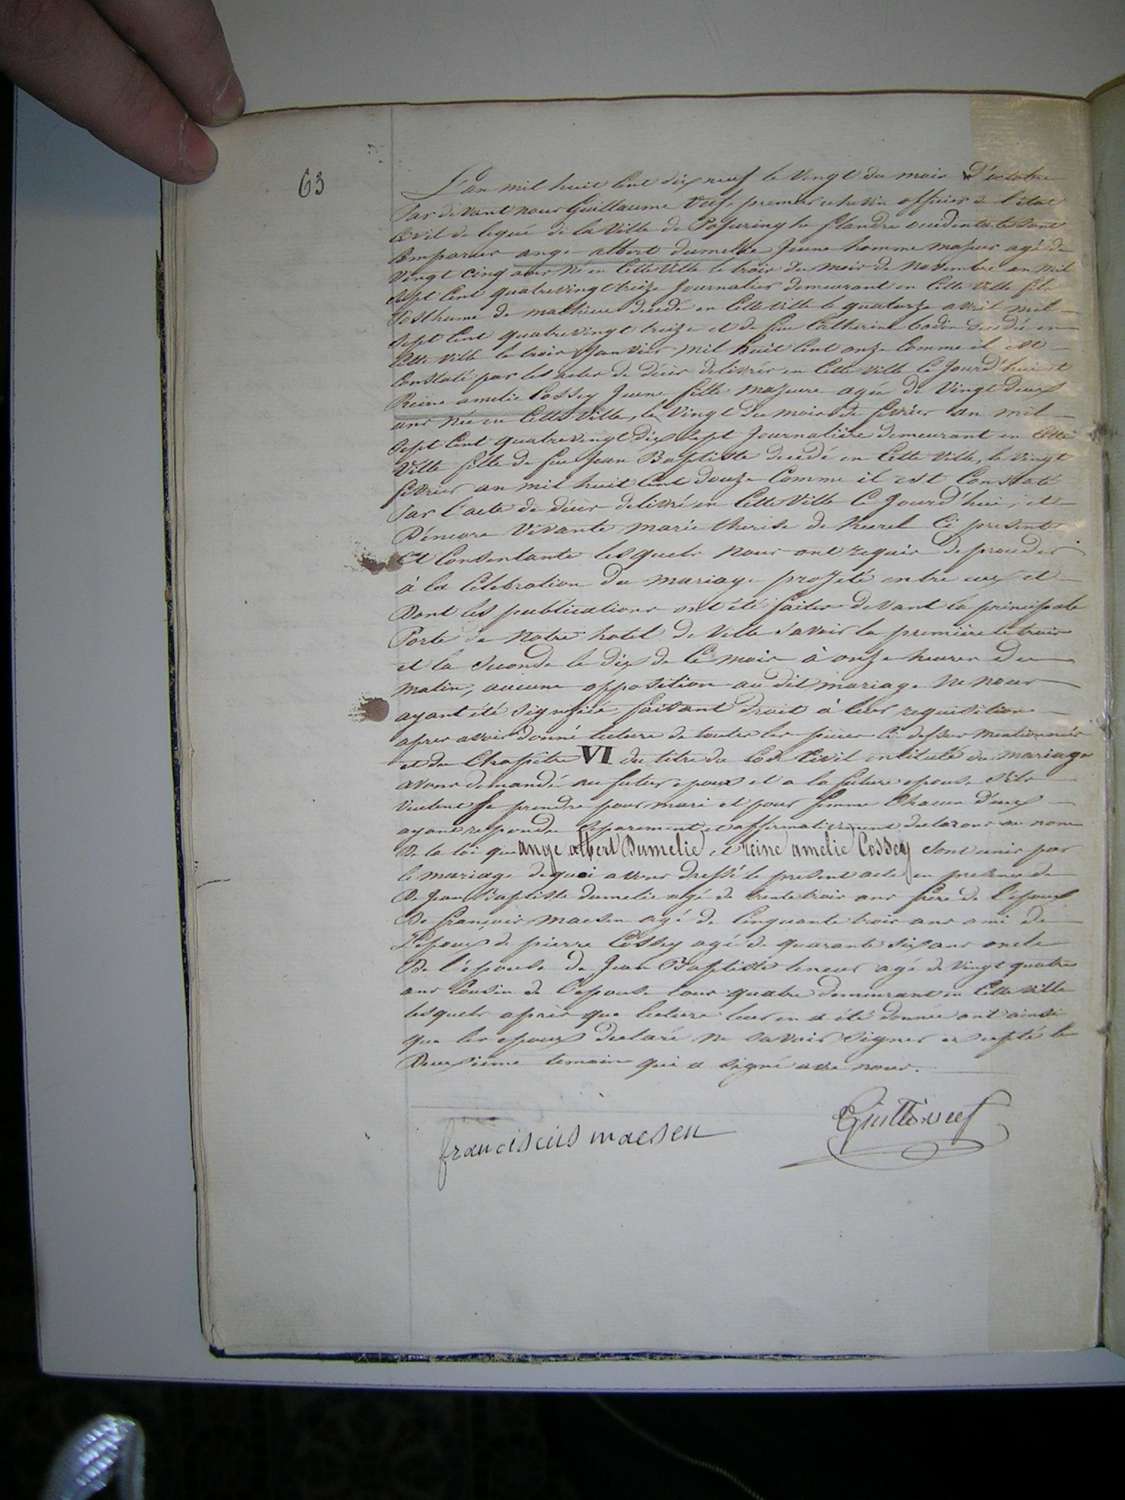 63
L'an mil huit cent dix neuf le vingt du mois d'octobre
par devant nous Guillaume Veef, premier echevin officier de l'état
civil delegué de la Ville de Poperinghe flandre occidentale sont
comparus ange albert dumelie jeune homme majeur agé de
vingt cinq ans né en cette ville le trois du mois de novembre an mil
sept cent quatrevingt treize journalier demeurant en cette ville fils
posthume de mathieu decedé en cette ville le quatorze avril mil
sept cent quatrevingt treize et de feu Catherine bodin decedée en
cette ville le trois janvier mil huit cent onze comme il est
constaté par les actes de décès delivrés en cette ville ce jourd'hui et
Reine amelie Cossey jeune fille majeure agée de vingt deux
ans née en cette ville, le vingt du mois de fevrier an mil
sept cent quatrevingt dix sept journalière demeurant en cette
ville fille de feu jean Baptiste decedé en cette ville, le vingt
fevrier an mil huit cent douze comme il est constaté
par l'acte de décès delivré en cette ville ce jourd'hui, et
d'encore vivante marie therese de ci presente
et consentante lesquels nous ont requis de proceder
à la celebration du mariage projeté entre eux et
dont les publications ont été faites devant la principale
Porte de notre hotel de ville savoir la premiere le trois
et la seconde le dix de ce mois à onze heures du
matin, aucune opposition au dit mariage ne nous
ayant été signifiée faisant droit à leur requisition
apres avoir donné lecture de toutes les pieces ci dessus mentionnées
et du Chapitre VI du titre du Code Civil intitulé du mariage
avons demandé au futur epoux et a la future epouse s'ils
veulent se prendre pour mari et pour femme chacun d'eux
ayant repondu separement et affirmativement declarons au nom
de la loi que ange albert Dumelie et reine amelie Cossey sont unis par
le mariage de quoi avons dressé le present acte en presence de
de Jean Baptiste dumelie agé de trente trois ans frere de l'epoux
de françois maesen agé de cinquante trois ans ami de
l'epoux de pierre Cossey agé de quarante six ans oncle
de l'épouse de Jean Baptiste agé de vingt quatre
ans cousin de l'epouse tous quatre demeurant en cette ville
lesquels après que lecture leur en a été donnée ont ainsi
que les epoux declaré ne savoir signer excepté le
deuxieme temoin qui a signé avec nous.
franciscus maesen
Guill Veef